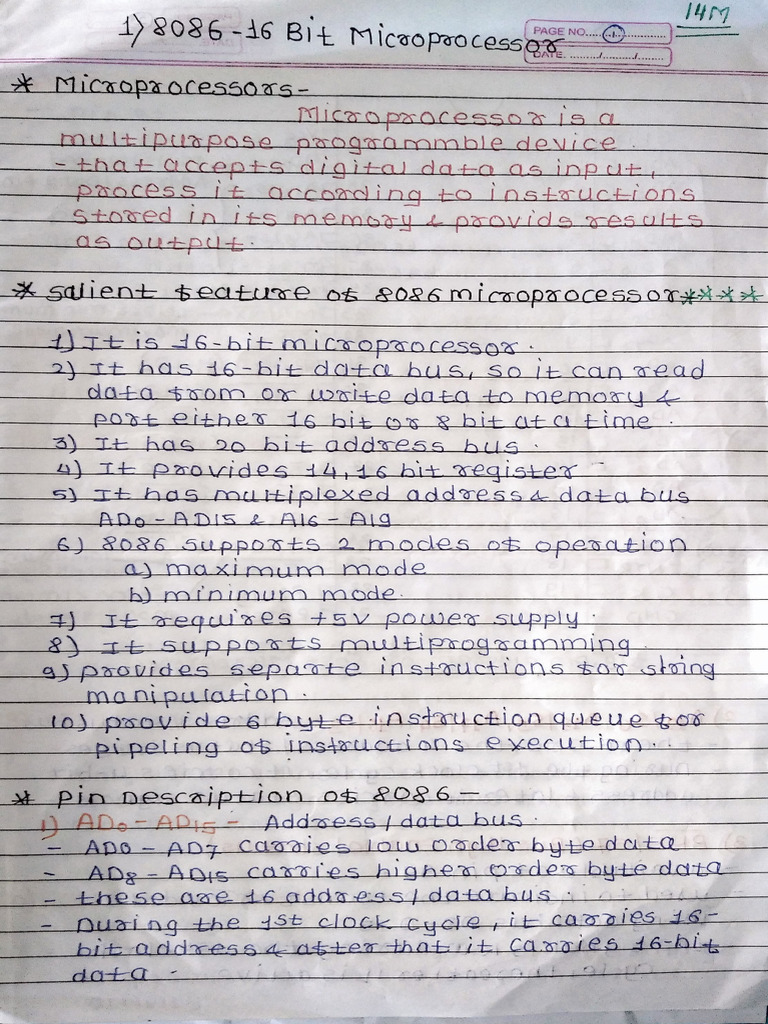 14M
1) 8086 - 16 Bit Microprocessor
PAGE NO. 1
DATE
* Microprocessors -
Microprocessor is a
multipurpose programmble device
- that accepts digital data as input,
process it according to instructions
stored in its memory & provids results
as output.
* Salient feature of 8086 microprocessor ****
1) It is 16-bit microprocessor.
2) It has 16-bit data bus, so it can read
data from or write data to memory &
port either 16 bit or 8 bit at a time.
3) It has 20 bit address bus.
4) It provides 14, 16 bit register
5) It has multiplexed address & data bus
AD0 - AD15 & A16 - A19
6) 8086 supports 2 modes of operation
a) maximum mode
b) minimum mode.
7) It requires +5V power supply.
8) It supports multiprogramming.
9) provides separte instructions for string
manipulation.
10) provide 6 byte instruction queue for
pipeling of instructions execution.
* Pin Description of 8086 -
1) AD0 - AD15 - Address / data bus.
- AD0 - AD7 carries low order byte data
- AD8 - AD15 carries higher order byte data
- these are 16 address / data bus.
- During the 1st clock cycle, it carries 16-
bit address & after that it carries 16-bit
data -